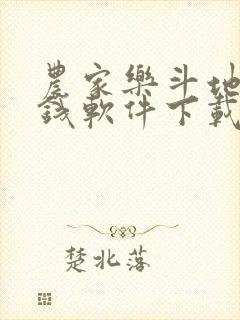 農家樂斗地
錢軟件下載
楚北落